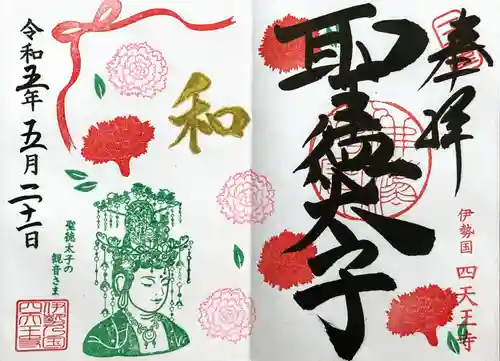 奉拝
聖徳太子
伊勢国 四天王寺
和
聖徳太子の
観音さま
令和五年 五月二十一日
伊勢国
四天王寺